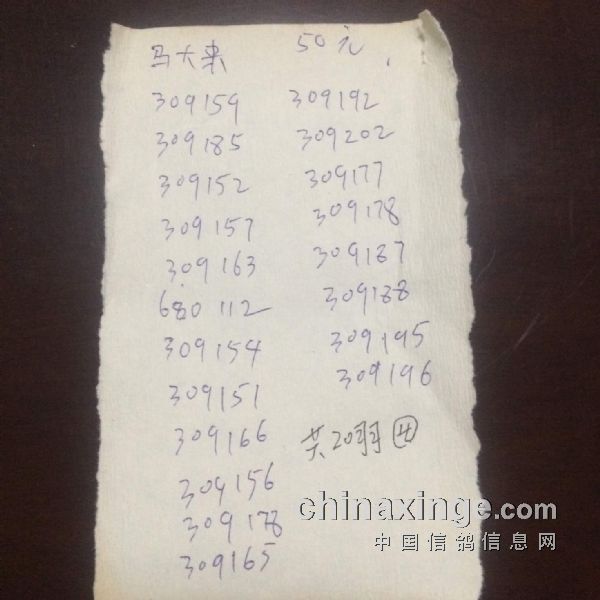 马大来 50元
309159
309185
309152
309157
309163
680112
309154
309151
309166
309156
309178
309165
309192
309202
309177
309178
309187
309188
309195
309196
共20羽
chinaxinge.com
中国信鸽信息网